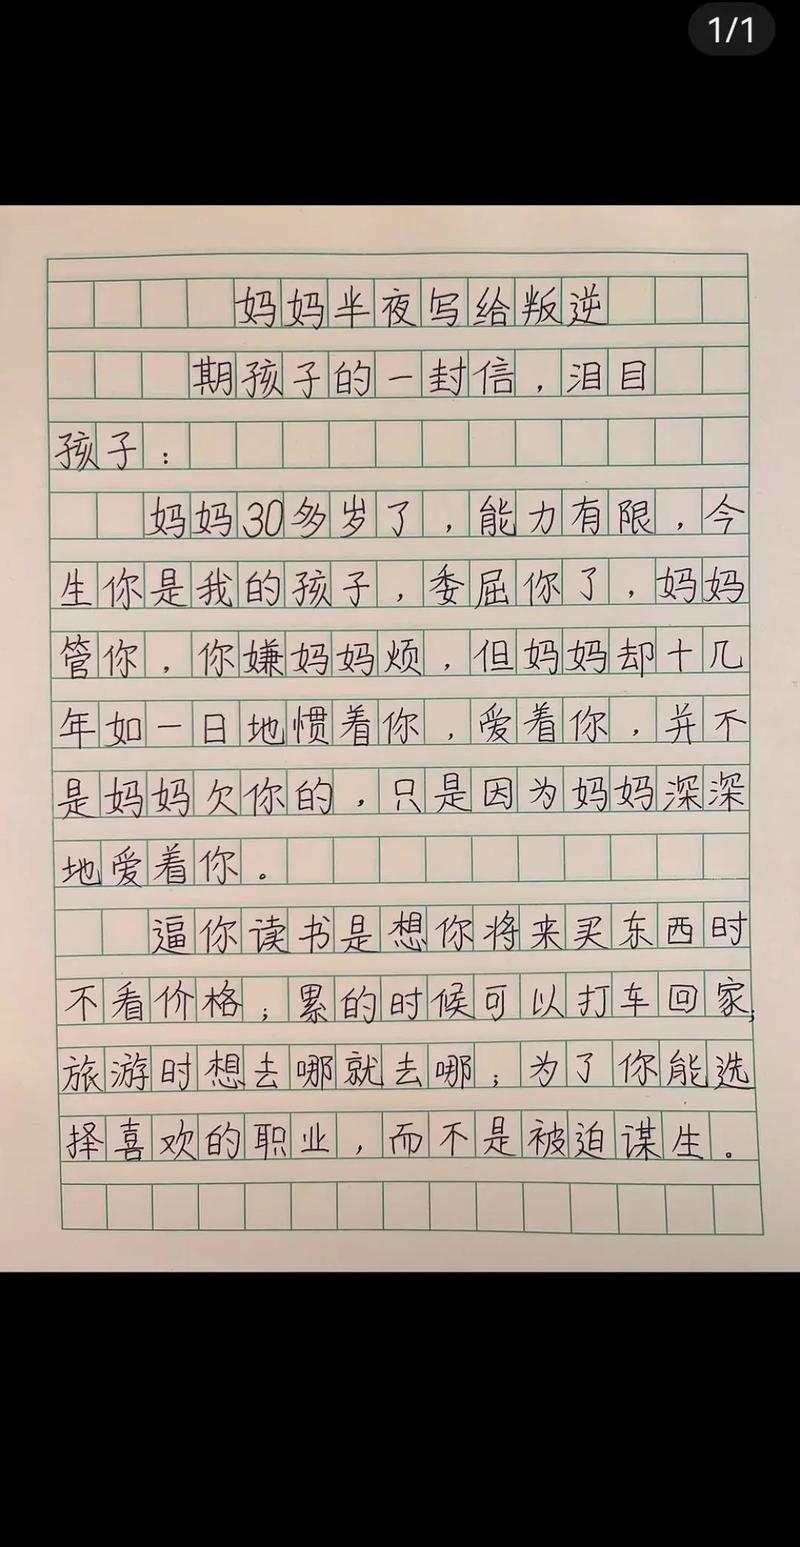 1/1
妈妈半夜写给叛逆
期孩子的一封信，泪目
孩子：
妈妈30多岁了，能力有限，今
生你是我的孩子，委屈你了，妈妈
管你，你嫌妈妈烦，但妈妈却十几
年如一日地惯着你，爱着你，并不
是妈妈欠你的，只是因为妈妈深深
地爱着你。
逼你读书是想你将来买东西时
不看价格；累的时候可以打车回家；
旅游时想去哪就去哪；为了你能选
择喜欢的职业，而不是被迫谋生。